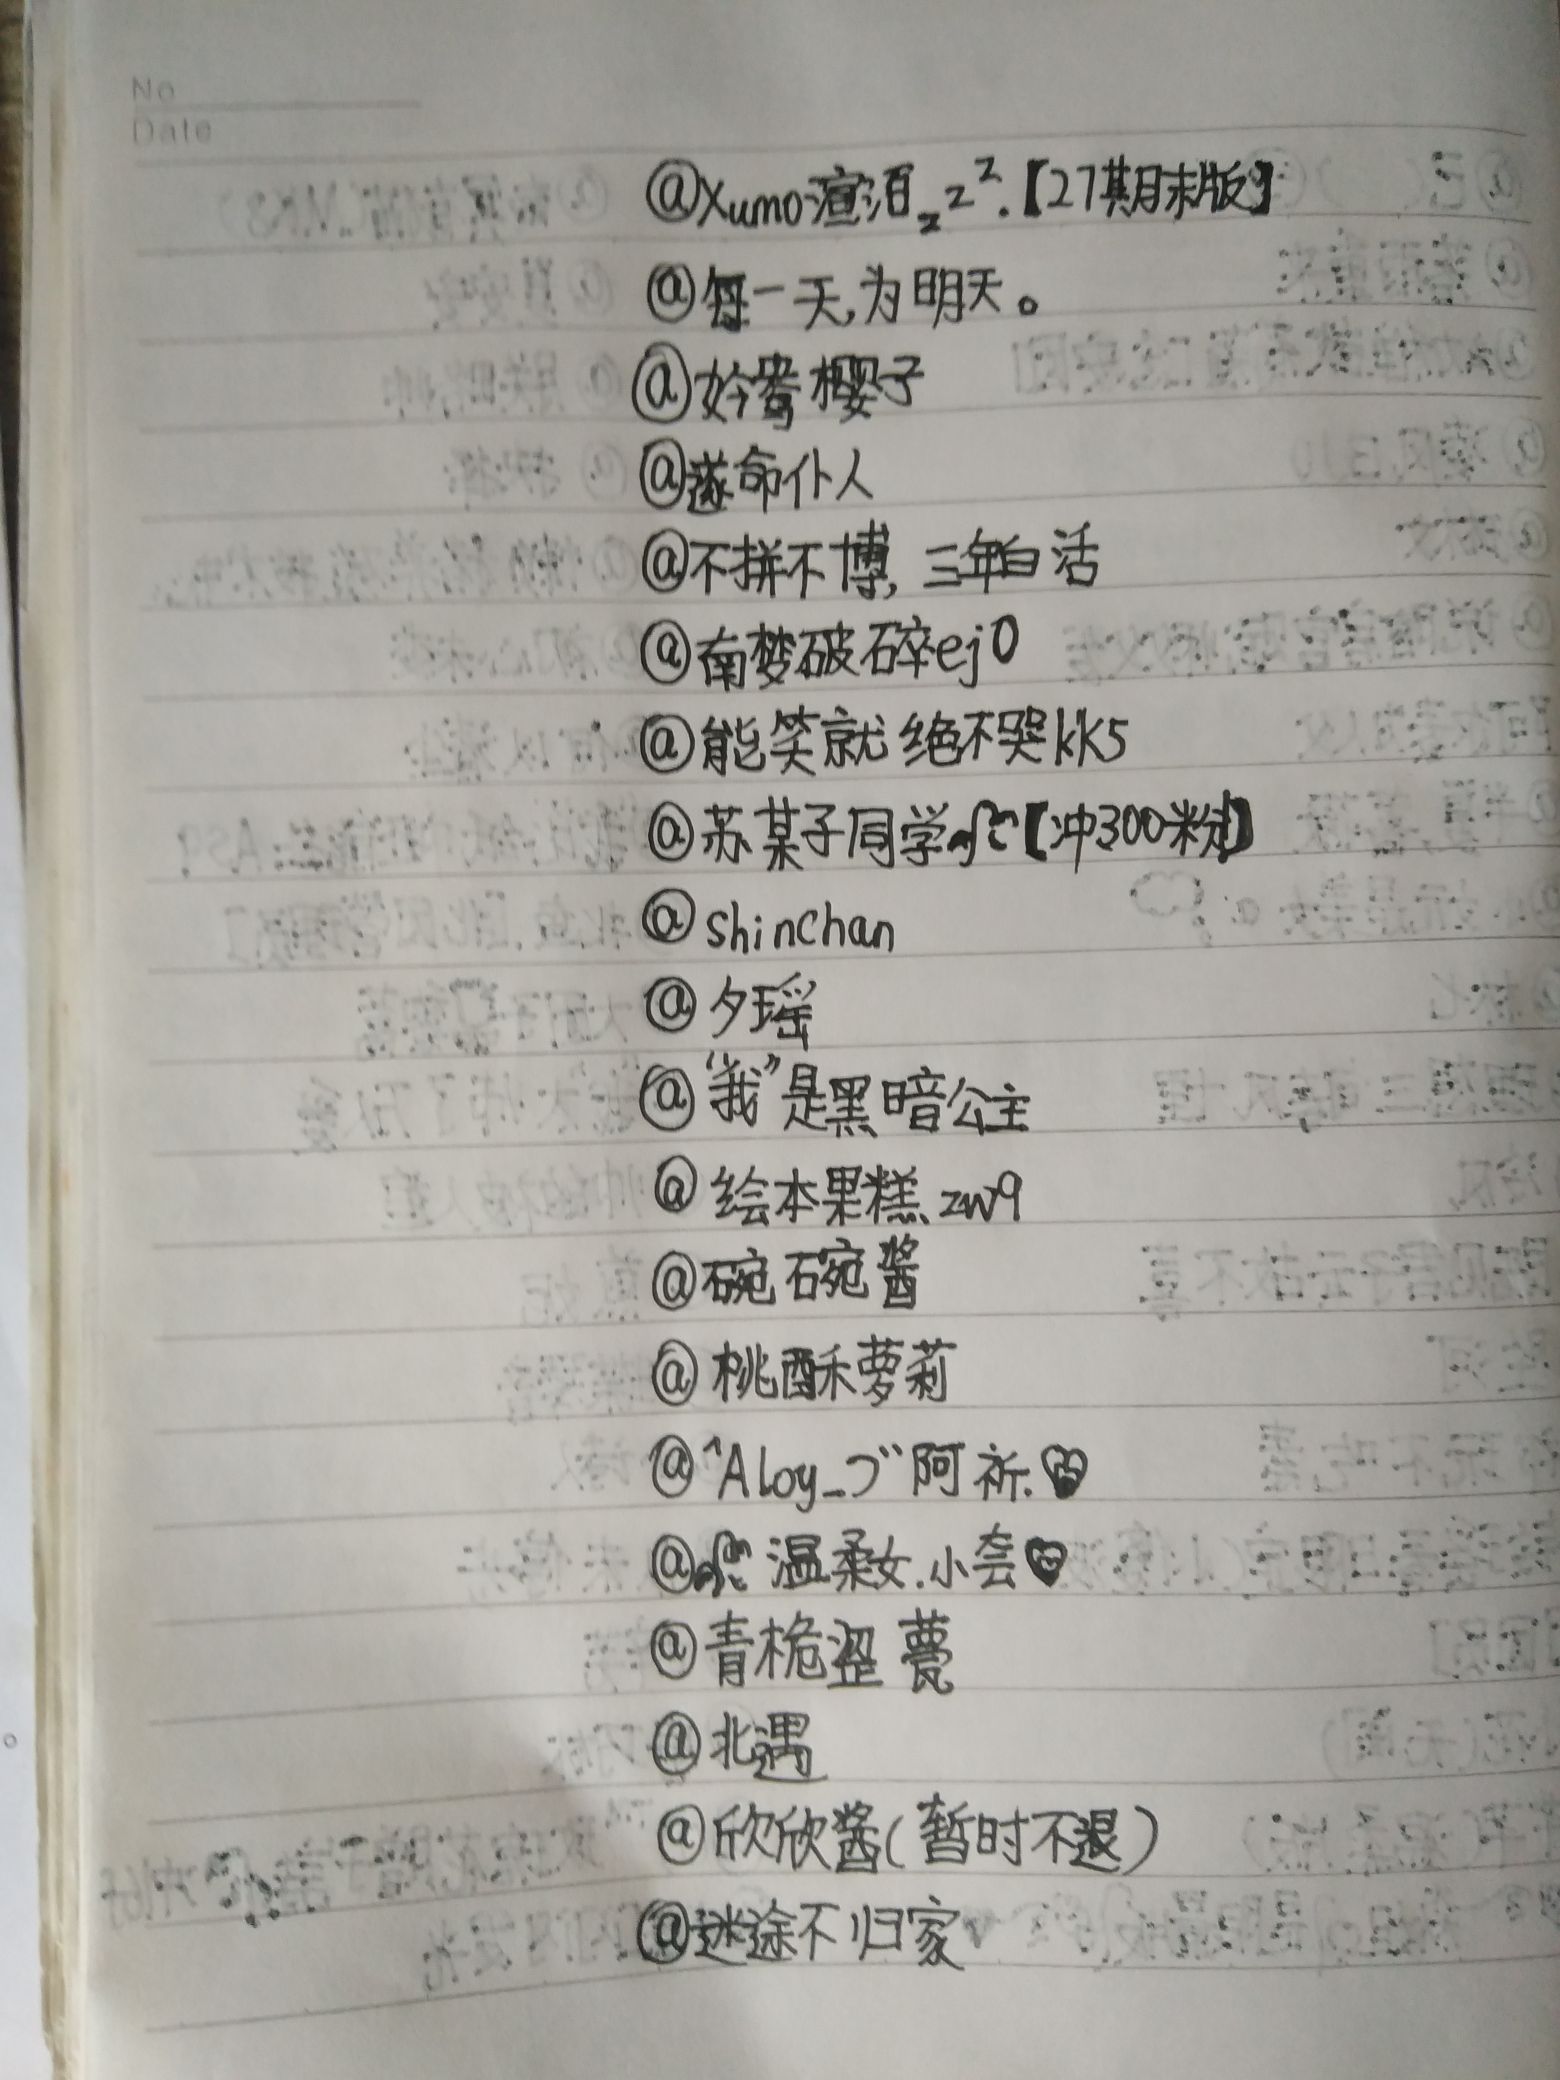 No
Date
@Xumo渲洦_z z ᶻ.【27期月末版】
@每一天,为明天。
@妗鸯樱子
@遂命仆人
@不拼不博,三年白活
@南梦破碎ej0
@能笑就绝不哭kk5
@苏某子同学【冲300粉】
@shinchan
@夕瑶
@“我”是黑暗公主
@绘本果糕zw9
@碗碗酱
@桃酥萝莉
@^Aloy_つ”阿祈.
@温柔女.小会
@青桅涩薨
@北遇
@欣欣酱(暂时不退)
@迷途不归家